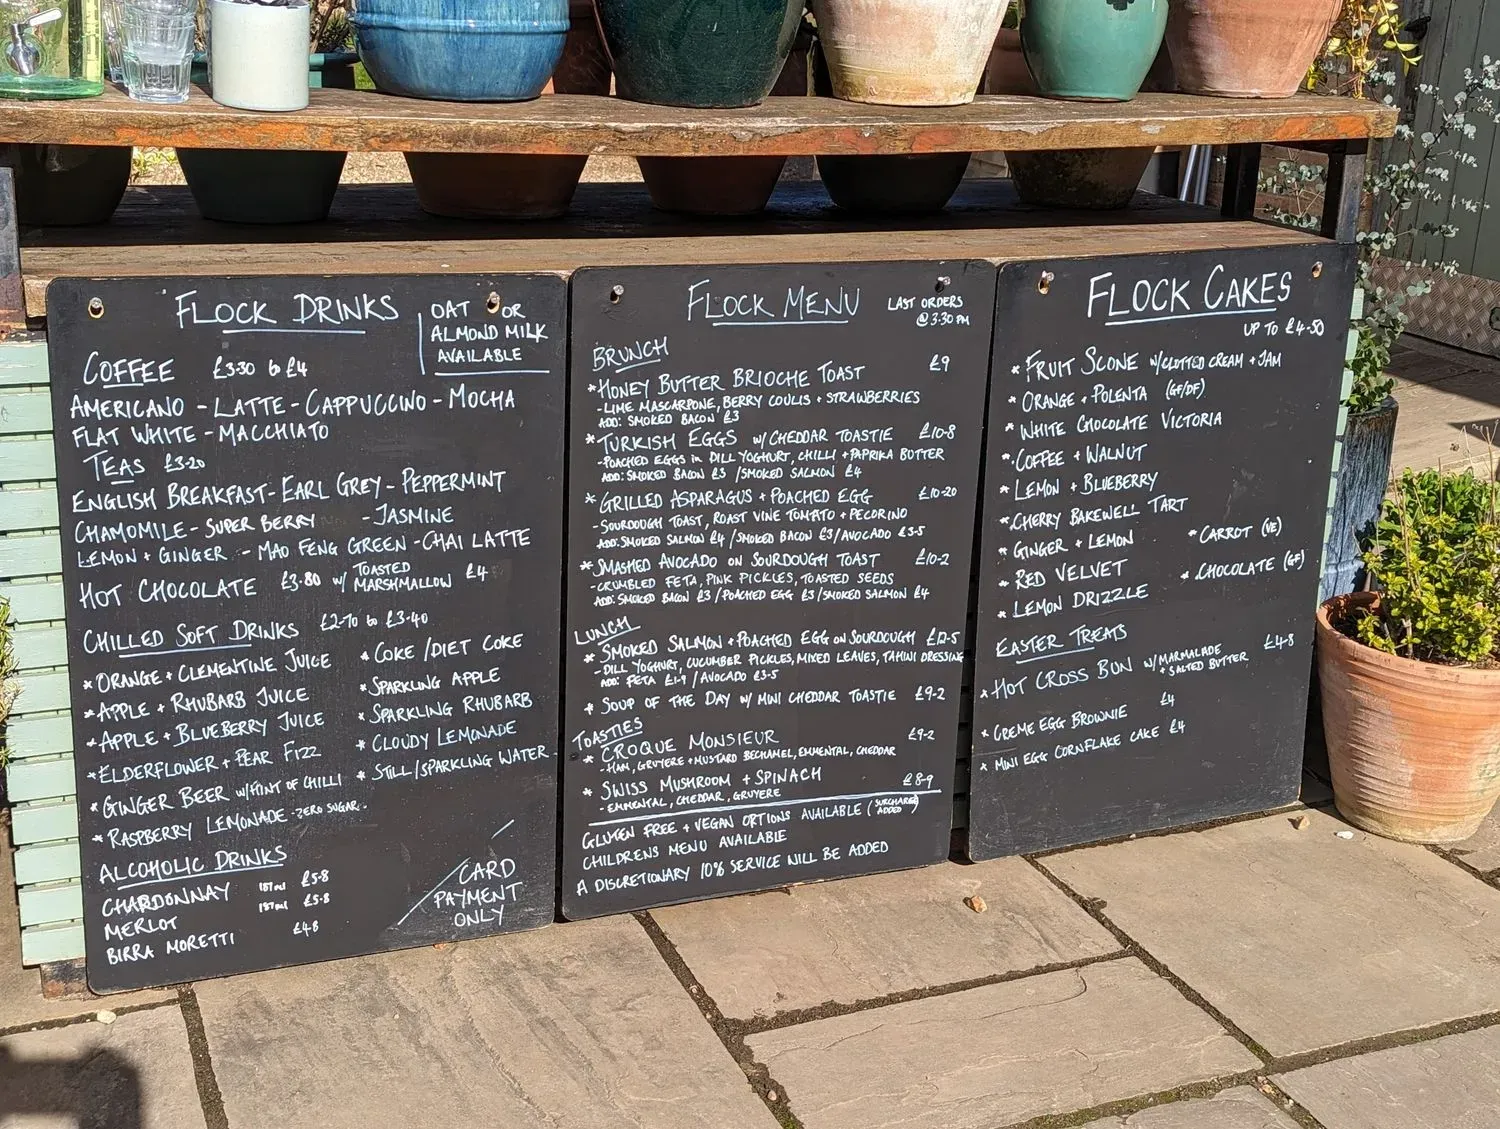 FLOCK DRINKS
OAT OR
ALMOND MILK
AVAILABLE
COFFEE £3-30 to £4
AMERICANO - LATTE - CAPPUCCINO - MOCHA
FLAT WHITE - MACCHIATO
TEAS £3-20
ENGLISH BREAKFAST - EARL GREY - PEPPERMINT
CHAMOMILE - SUPER BERRY - JASMINE
LEMON + GINGER - MAO FENG GREEN - CHAI LATTE
HOT CHOCOLATE £3-80 w/ TOASTED MARSHMALLOW £4
CHILLED SOFT DRINKS £2-70 to £3-40
* ORANGE + CLEMENTINE JUICE
* APPLE + RHUBARB JUICE
* APPLE + BLUEBERRY JUICE
* ELDERFLOWER + PEAR FIZZ
* GINGER BEER w/HINT OF CHILLI
* RASPBERRY LEMONADE - ZERO SUGAR -
* COKE / DIET COKE
* SPARKLING APPLE
* SPARKLING RHUBARB
* CLOUDY LEMONADE
* STILL/SPARKLING WATER
ALCOHOLIC DRINKS
CHARDONNAY 187ml £5-8
MERLOT 187ml £5-8
BIRRA MORETTI £4-8
CARD
PAYMENT
ONLY
FLOCK MENU
LAST ORDERS
@ 3:30 PM
BRUNCH
* HONEY BUTTER BRIOCHE TOAST £9
- LIME MASCARPONE, BERRY COULIS + STRAWBERRIES
ADD: SMOKED BACON £3
* TURKISH EGGS w/ CHEDDAR TOASTIE £10-8
- POACHED EGGS in DILL YOGHURT, CHILLI + PAPRIKA BUTTER
ADD: SMOKED BACON £3 / SMOKED SALMON £4
* GRILLED ASPARAGUS + POACHED EGG £10-20
- SOURDOUGH TOAST, ROAST VINE TOMATO + PECORINO
ADD: SMOKED SALMON £4 / SMOKED BACON £3 / AVOCADO £3-5
* SMASHED AVOCADO ON SOURDOUGH TOAST £10-2
- CRUMBLED FETA, PINK PICKLES, TOASTED SEEDS
ADD: SMOKED BACON £3 / POACHED EGG £3 / SMOKED SALMON £4
LUNCH
* SMOKED SALMON + POACHED EGG ON SOURDOUGH £12-5
- DILL YOGHURT, CUCUMBER PICKLES, MIXED LEAVES, TAHINI DRESSING
ADD: FETA £1-9 / AVOCADO £3-5
* SOUP OF THE DAY W/ MINI CHEDDAR TOASTIE £9-2
TOASTIES
* CROQUE MONSIEUR £9-2
- HAM, GRUYERE + MUSTARD BECHAMEL, EMMENTAL, CHEDDAR
* SWISS MUSHROOM + SPINACH £8-9
- EMMENTAL, CHEDDAR, GRUYERE
GLUTEN FREE + VEGAN OPTIONS AVAILABLE (SURCHARGE ADDED)
CHILDRENS MENU AVAILABLE
A DISCRETIONARY 10% SERVICE WILL BE ADDED
FLOCK CAKES
UP TO £4-50
* FRUIT SCONE w/CLOTTED CREAM + JAM
* ORANGE + POLENTA (GF/DF)
* WHITE CHOCOLATE VICTORIA
* COFFEE + WALNUT
* LEMON + BLUEBERRY
* CHERRY BAKEWELL TART
* GINGER + LEMON
* RED VELVET
* LEMON DRIZZLE
* CARROT (VE)
* CHOCOLATE (GF)
EASTER TREATS
* HOT CROSS BUN w/ MARMALADE + SALTED BUTTER £4-8
* CREME EGG BROWNIE £4
* MINI EGG CORNFLAKE CAKE £4